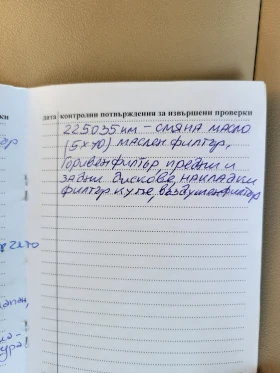 дата контролни потвърждения за извършени проверки
225035 км - смяна масло
(5х40) маслен филтър,
Горивен филтър предни и
задни дискове, накладки
филтър купе, въздушен филтър